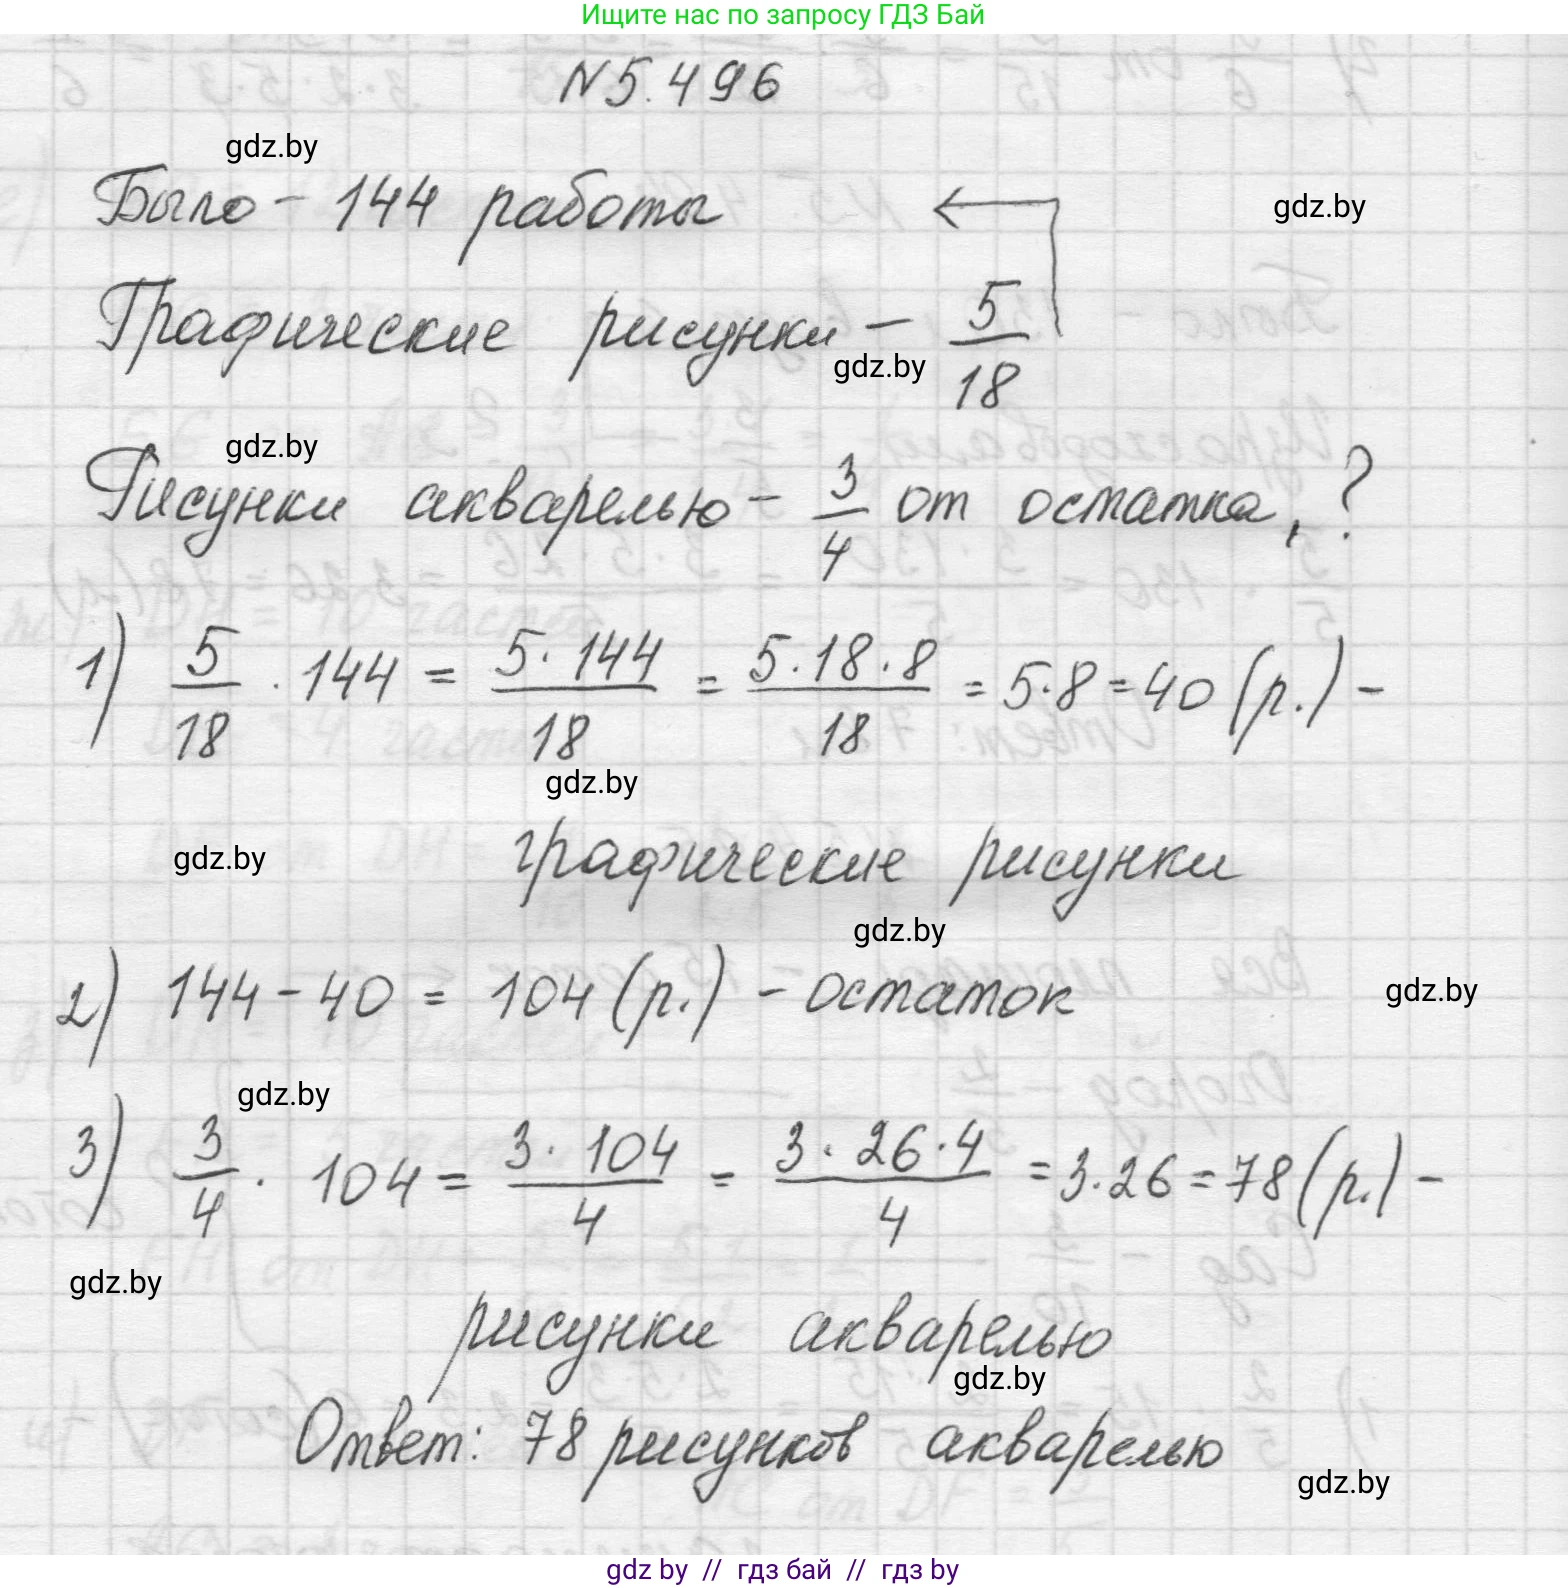 Ищите нас по запросу ГДЗ Бай
N 5.496
gdz.by
Было - 144 работы
gdz.by
Графические рисунки - 5/18
gdz.by
gdz.by
Рисунки акварелью - 3/4 от остатка, ?
1) 5/18 · 144 = 5·144/18 = 5·18·8/18 = 5·8 = 40 (р.) -
gdz.by
графические рисунки
gdz.by
gdz.by
2) 144 - 40 = 104 (р.) - остаток
gdz.by
gdz.by
3) 3/4 · 104 = 3·104/4 = 3·26·4/4 = 3·26 = 78 (р.) -
gdz.by
рисунки акварелью
gdz.by
Ответ: 78 рисунков акварелью
gdz.by
gdz by // гдз бай // гдз by